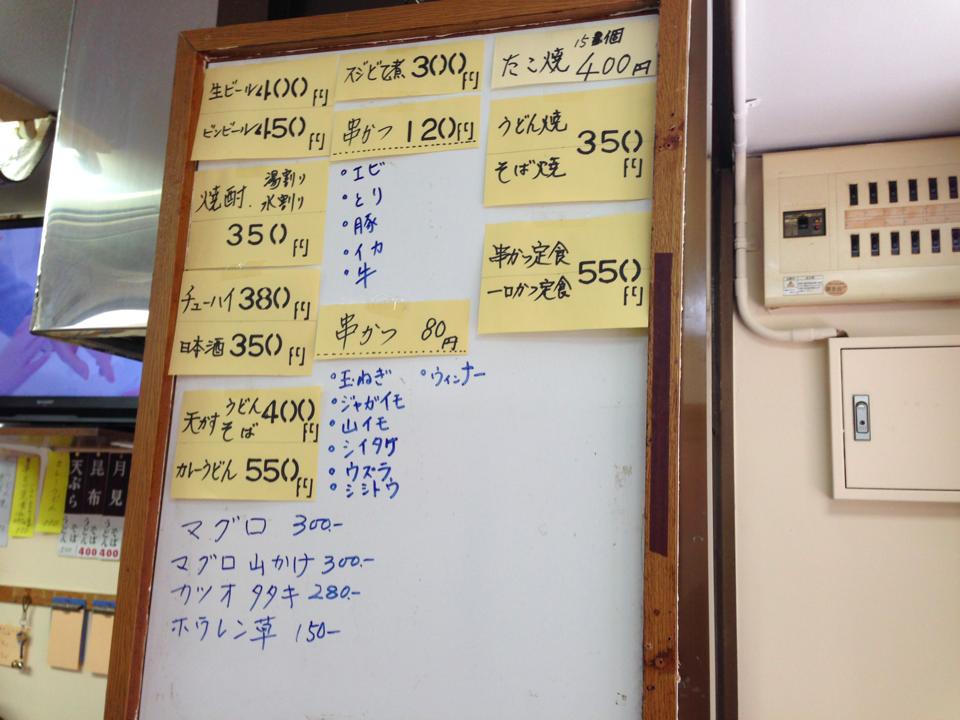 生ビール 400円
ビンビール 450円
焼酎. 湯割り
水割り
350円
チューハイ 380円
日本酒 350円
天かす うどん 400円
そば
カレーうどん 550円
マグロ 300.-
マグロ山かけ 300.-
カツオタタキ 280.-
ホウレン草 150-
スジどて煮 300円
串かつ 120円
・エビ
・とり
・豚
・イカ
・牛
串かつ 80円
・玉ねぎ ・ウィンナー
・ジャガイモ
・山イモ
・シイタケ
・ウズラ
・シシトウ
たこ焼 15個 400円
うどん焼
そば焼
350円
串かつ定食
一口かつ定食
550円
月見
うどん
そば
400
昆布
うどん
そば
400
天ぷら
うどん
そば
SHARP